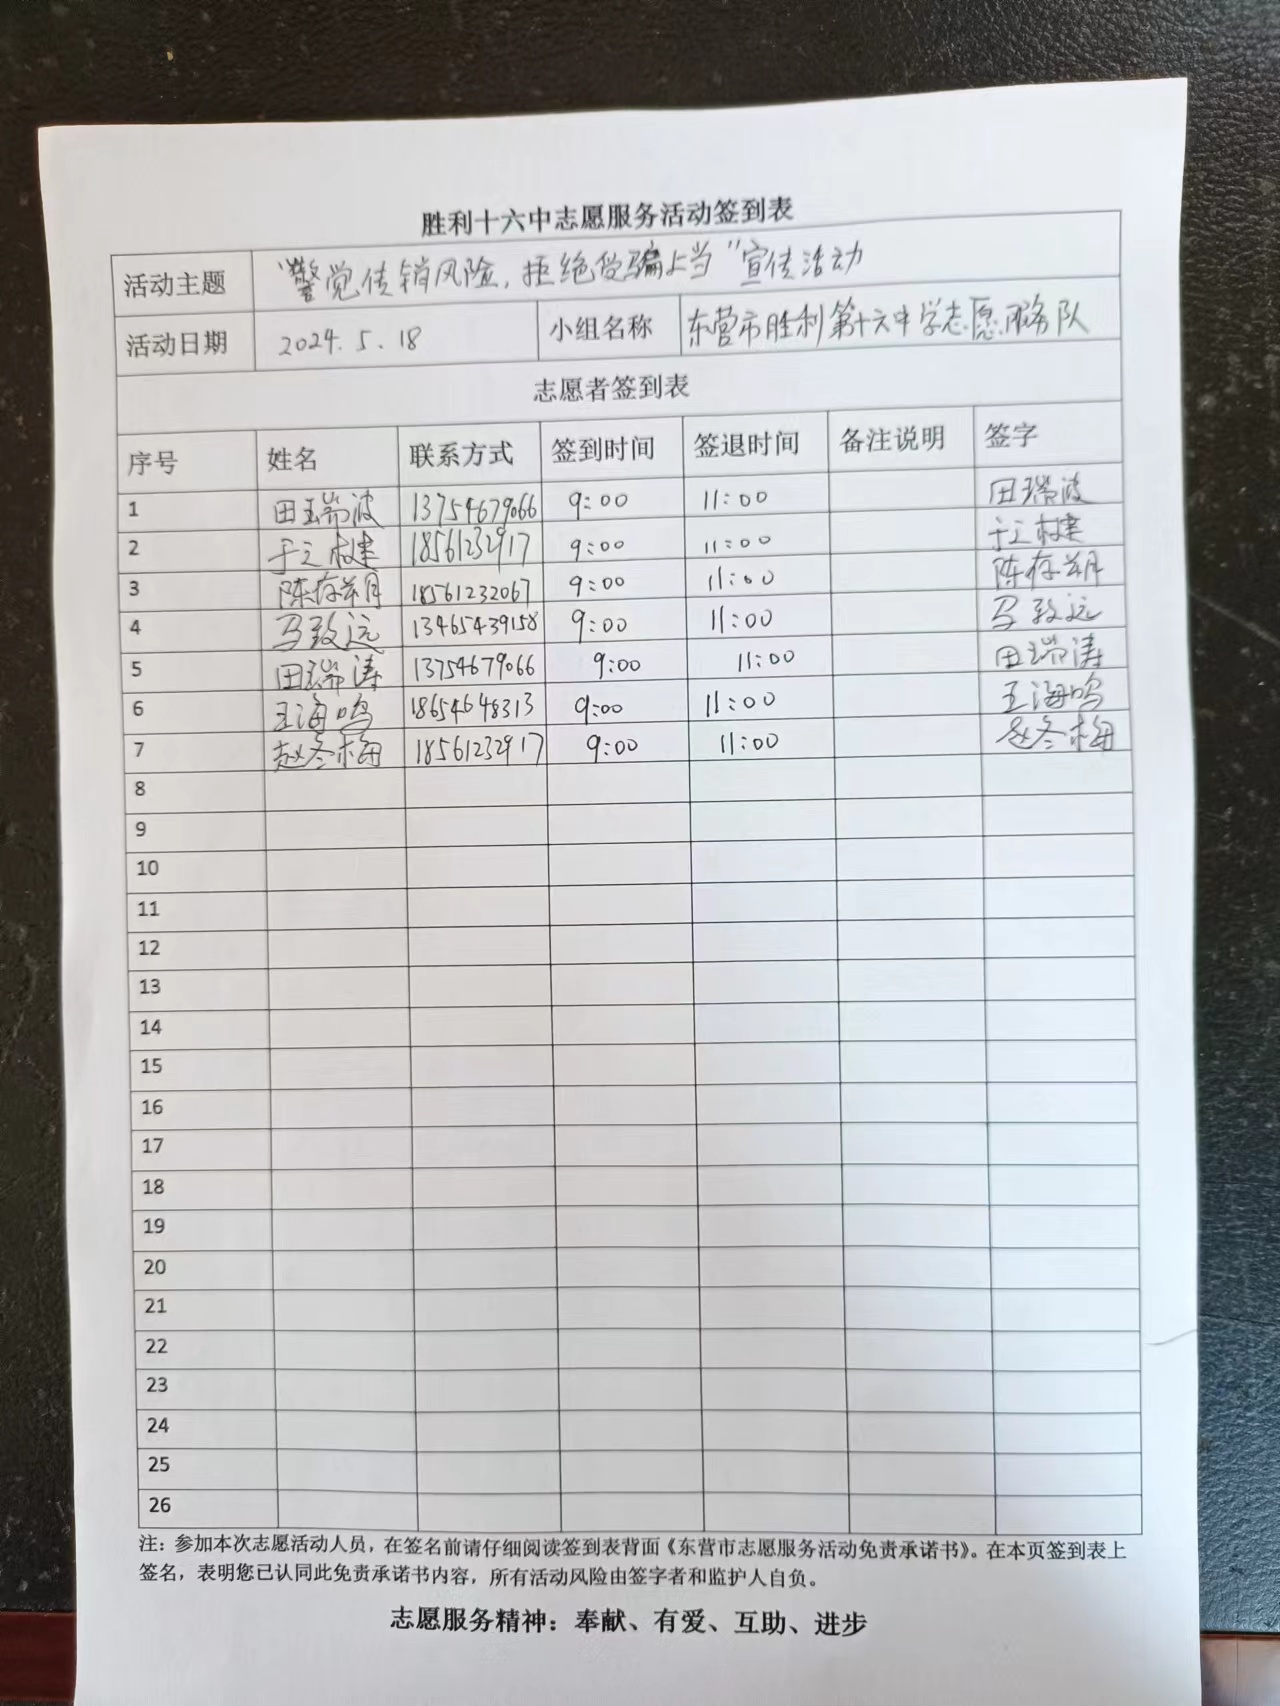 胜利十六中志愿服务活动签到表
活动主题 "警觉传销风险，拒绝受骗上当"宣传活动
活动日期 2024.5.18 小组名称 东营市胜利第十六中学志愿服务队
志愿者签到表
序号 姓名 联系方式 签到时间 签退时间 备注说明 签字
1 田瑞波 13754679066 9:00 11:00 田瑞波
2 于立健 18561232917 9:00 11:00 于立健
3 陈存 18561232067 9:00 11:00 陈存
4 马致远 13465439158 9:00 11:00 马致远
5 田瑞涛 13754679066 9:00 11:00 田瑞涛
6 王海鸣 18654648313 9:00 11:00 王海鸣
7 赵冬梅 18561232917 9:00 11:00 赵冬梅
8
9
10
11
12
13
14
15
16
17
18
19
20
21
22
23
24
25
26
注：参加本次志愿活动人员，在签名前请仔细阅读签到表背面《东营市志愿服务活动免责承诺书》。在本页签到表上
签名，表明您已认同此免责承诺书内容，所有活动风险由签字者和监护人自负。
志愿服务精神：奉献、有爱、互助、进步